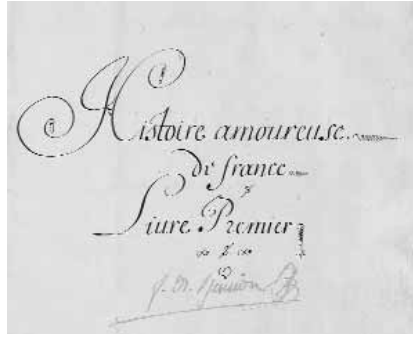 Histoire amoureuse
de france
Liure Premier